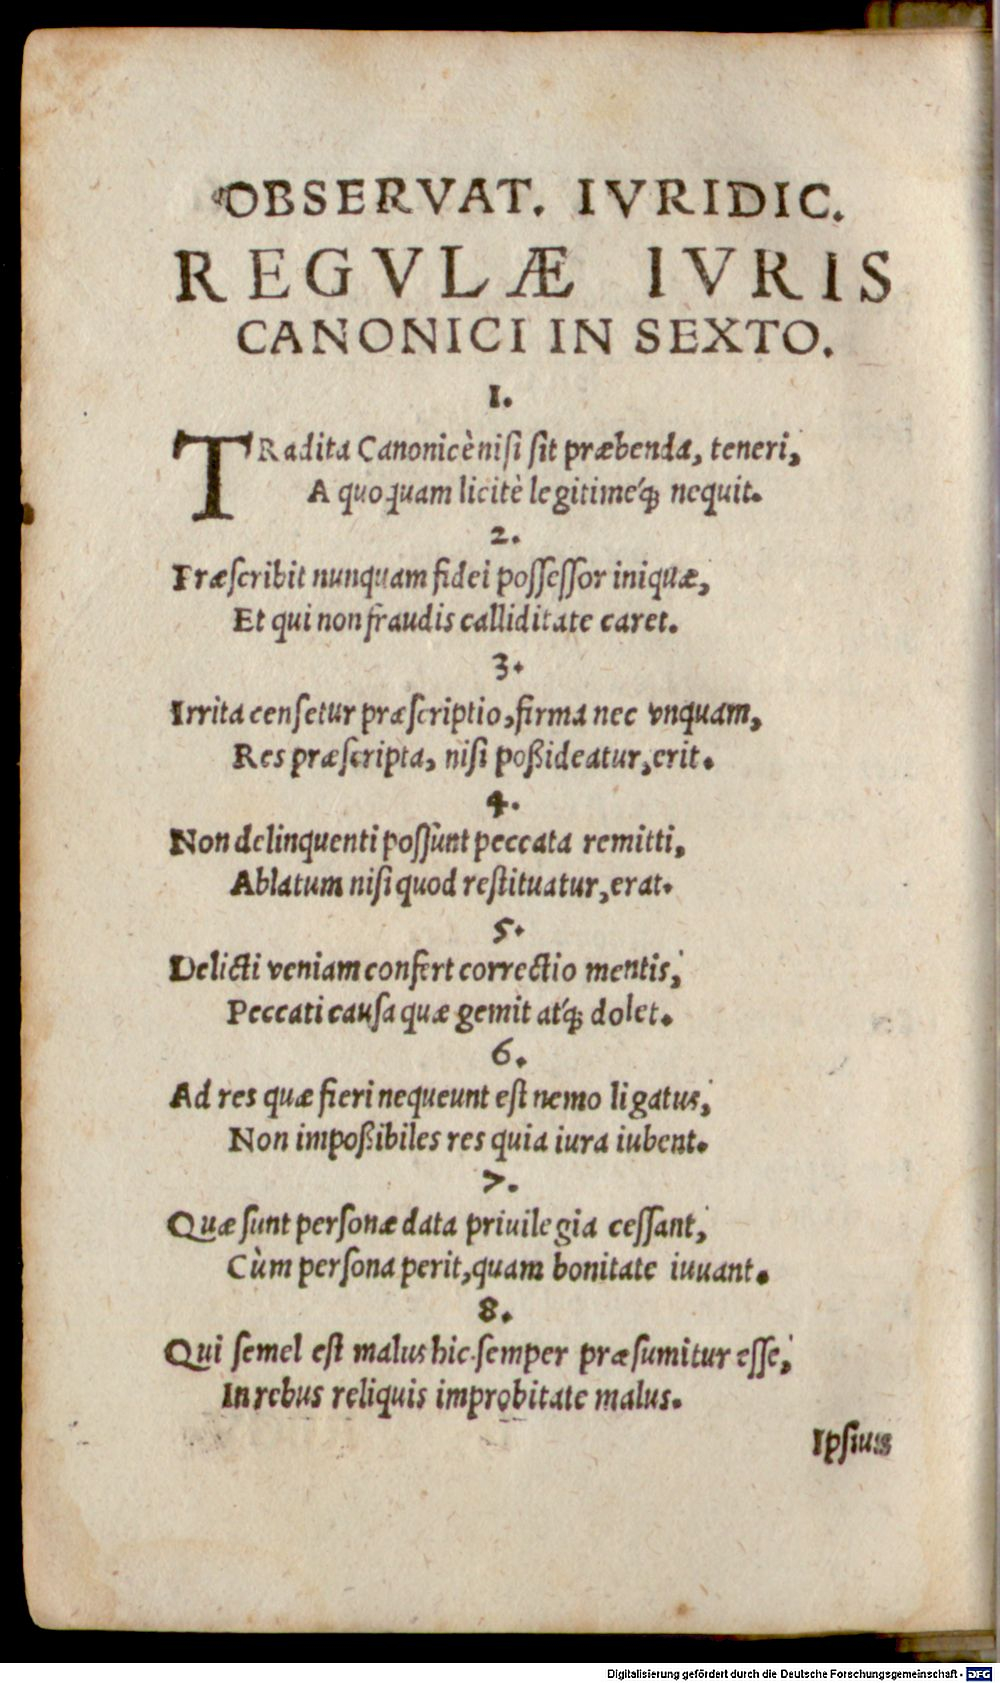 OBSERVAT. IVRIDIC.
REGVLÆ IVRIS
CANONICI IN SEXTO.
1.
TRadita Canonicè nisi sit præbenda, teneri,
A quoquam licitè legitimeq́; nequit.
2.
Præſcribit nunquam fidei poſſeſſor iniquæ,
Et qui non fraudis calliditate caret.
3.
Irrita cenſetur præſcriptio, firma nec vnquam,
Res præſcripta, niſi poßideatur, erit.
4.
Non delinquenti poſſunt peccata remitti,
Ablatum niſi quod reſtituatur, erat.
5.
Delicti veniam confert correctio mentis,
Peccati cauſa quæ gemit atq́; dolet.
6.
Ad res quæ fieri nequeunt eſt nemo ligatus,
Non impoßibiles res quia iura iubent.
7.
Quæ ſunt perſonæ data priuilegia ceſſant,
Cùm perſona perit, quam bonitate iuuant.
8.
Qui ſemel eſt malus hic ſemper præſumitur eſſe,
In rebus reliquis improbitate malus.
Ipſius
Digitalisierung gefördert durch die Deutsche Forschungsgemeinschaft - DFG